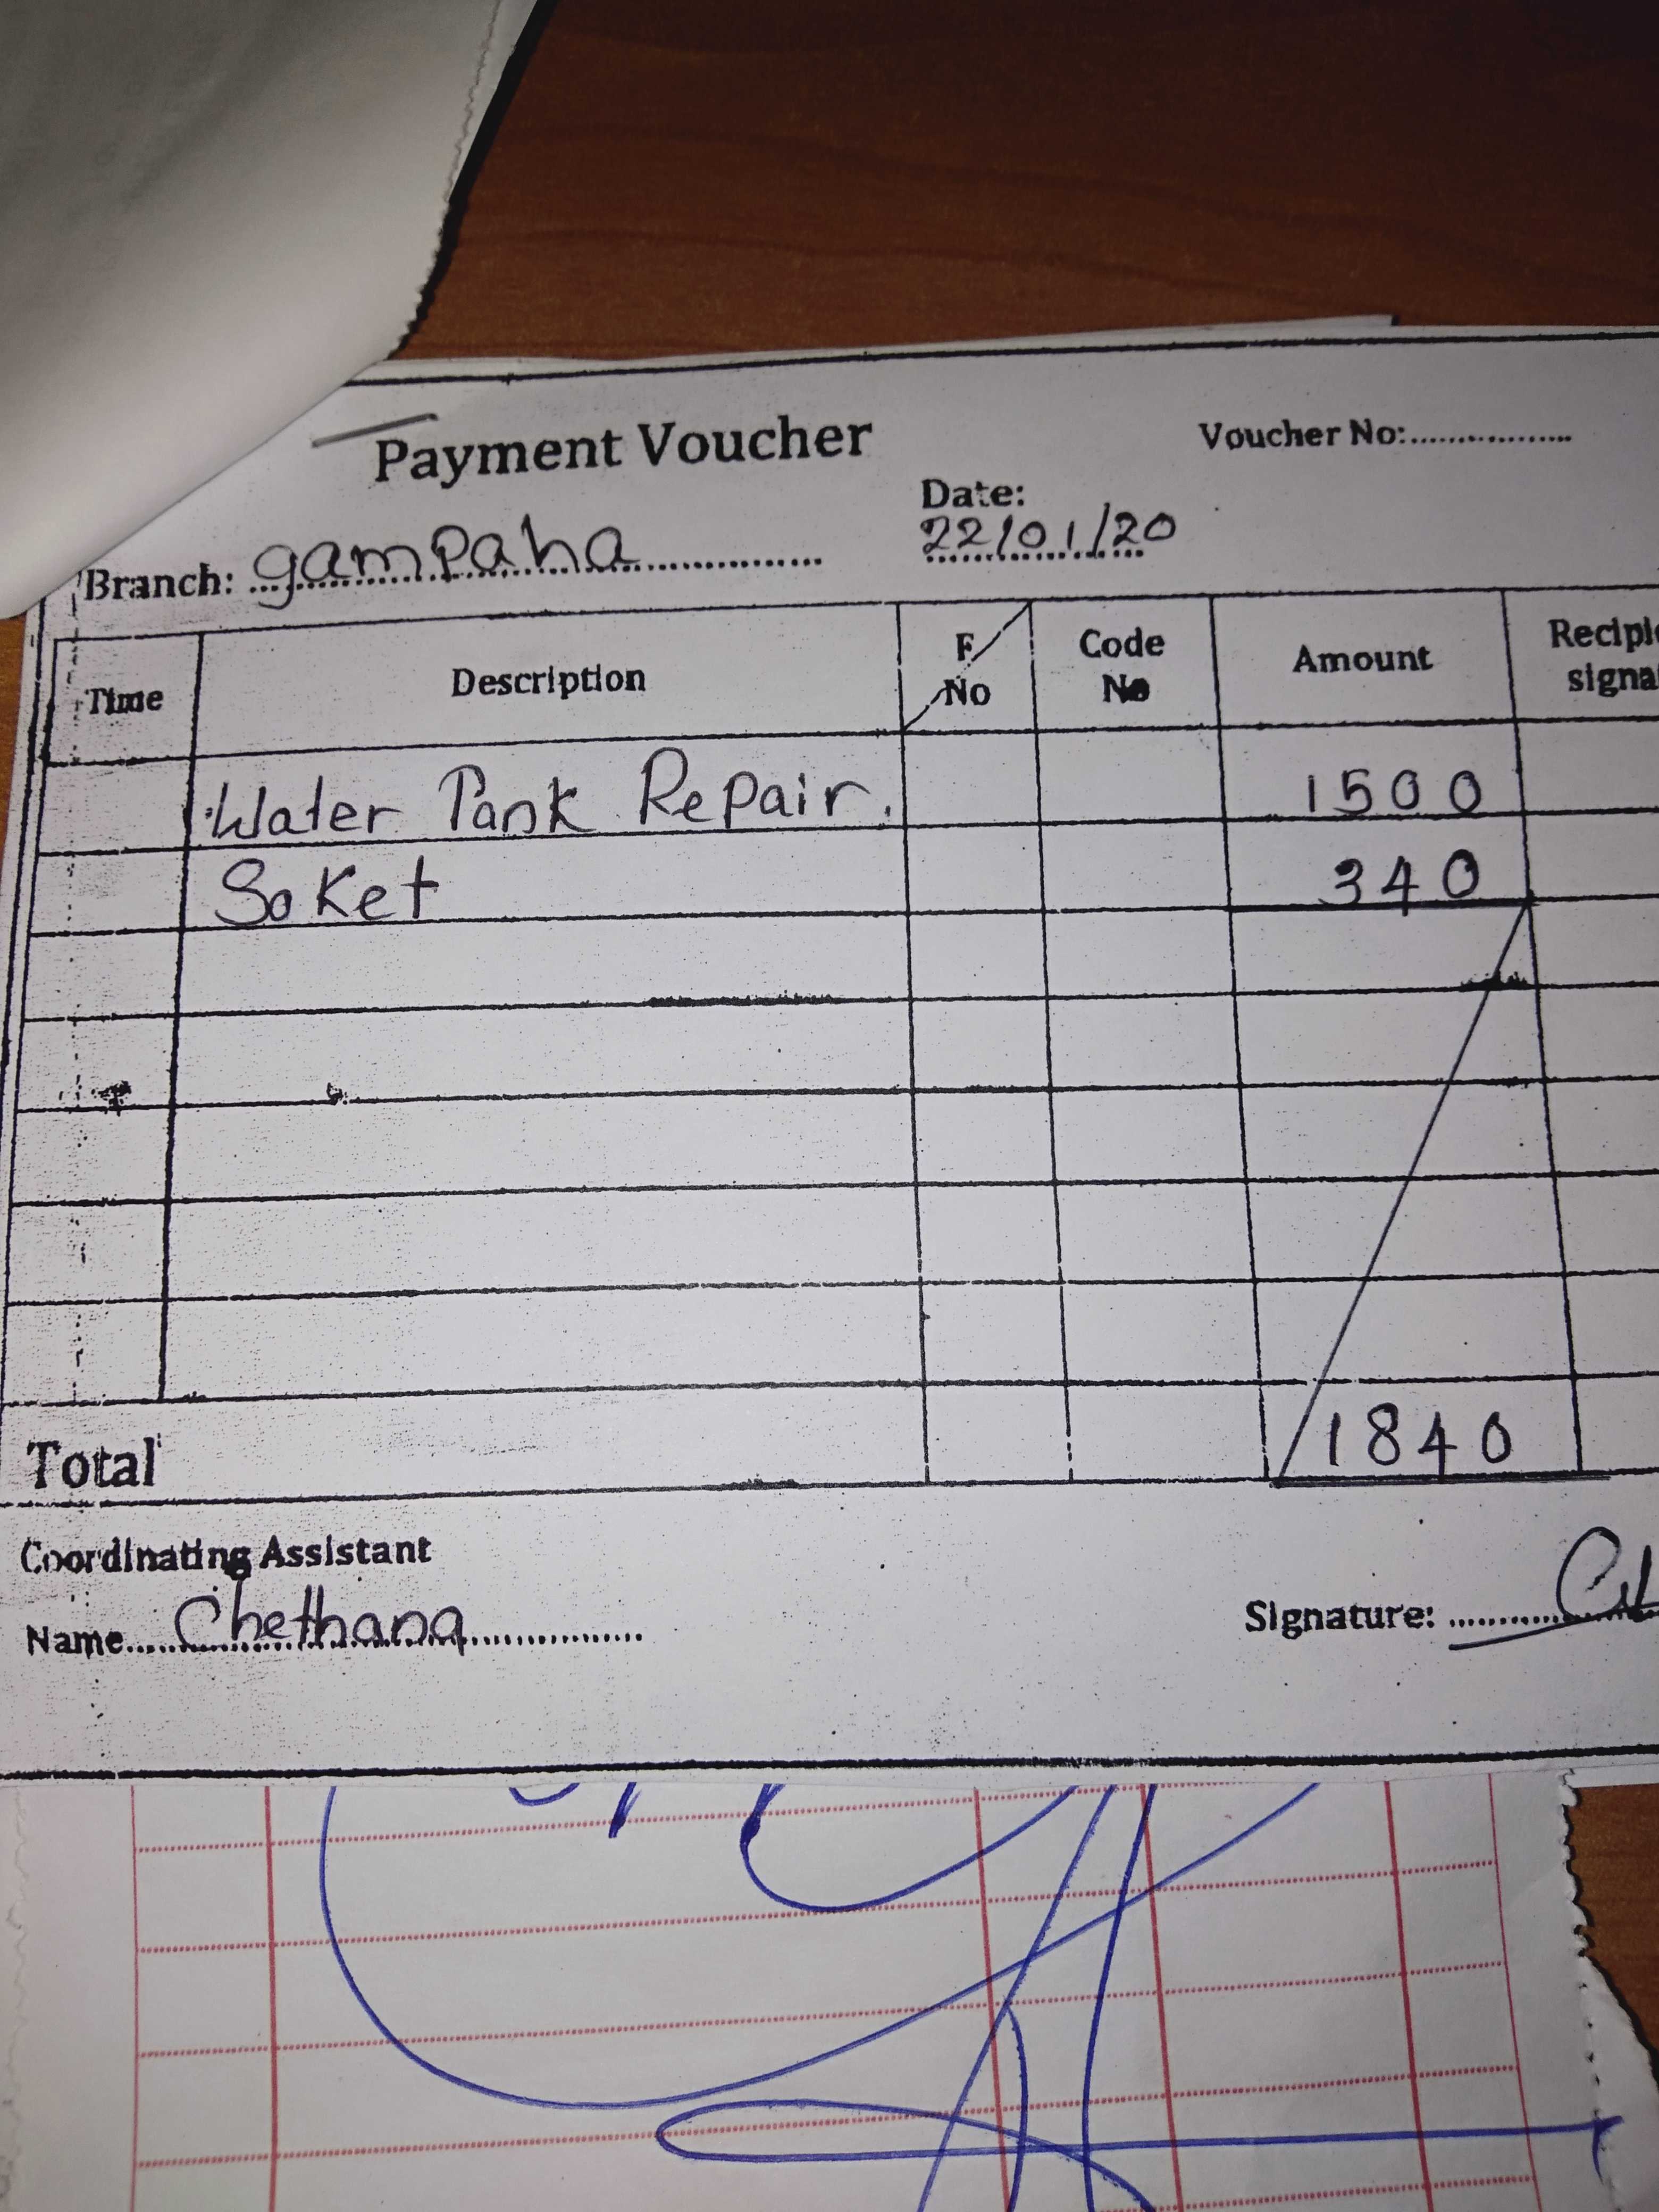 Payment Voucher
Voucher No:..................
Date:
22/01/20
Branch: gampaha
Time Description F No Code No Amount
Water Tank Repair. 1500
Soket 340
Total 1840
Coordinating Assistant
Name Chethana
Signature: